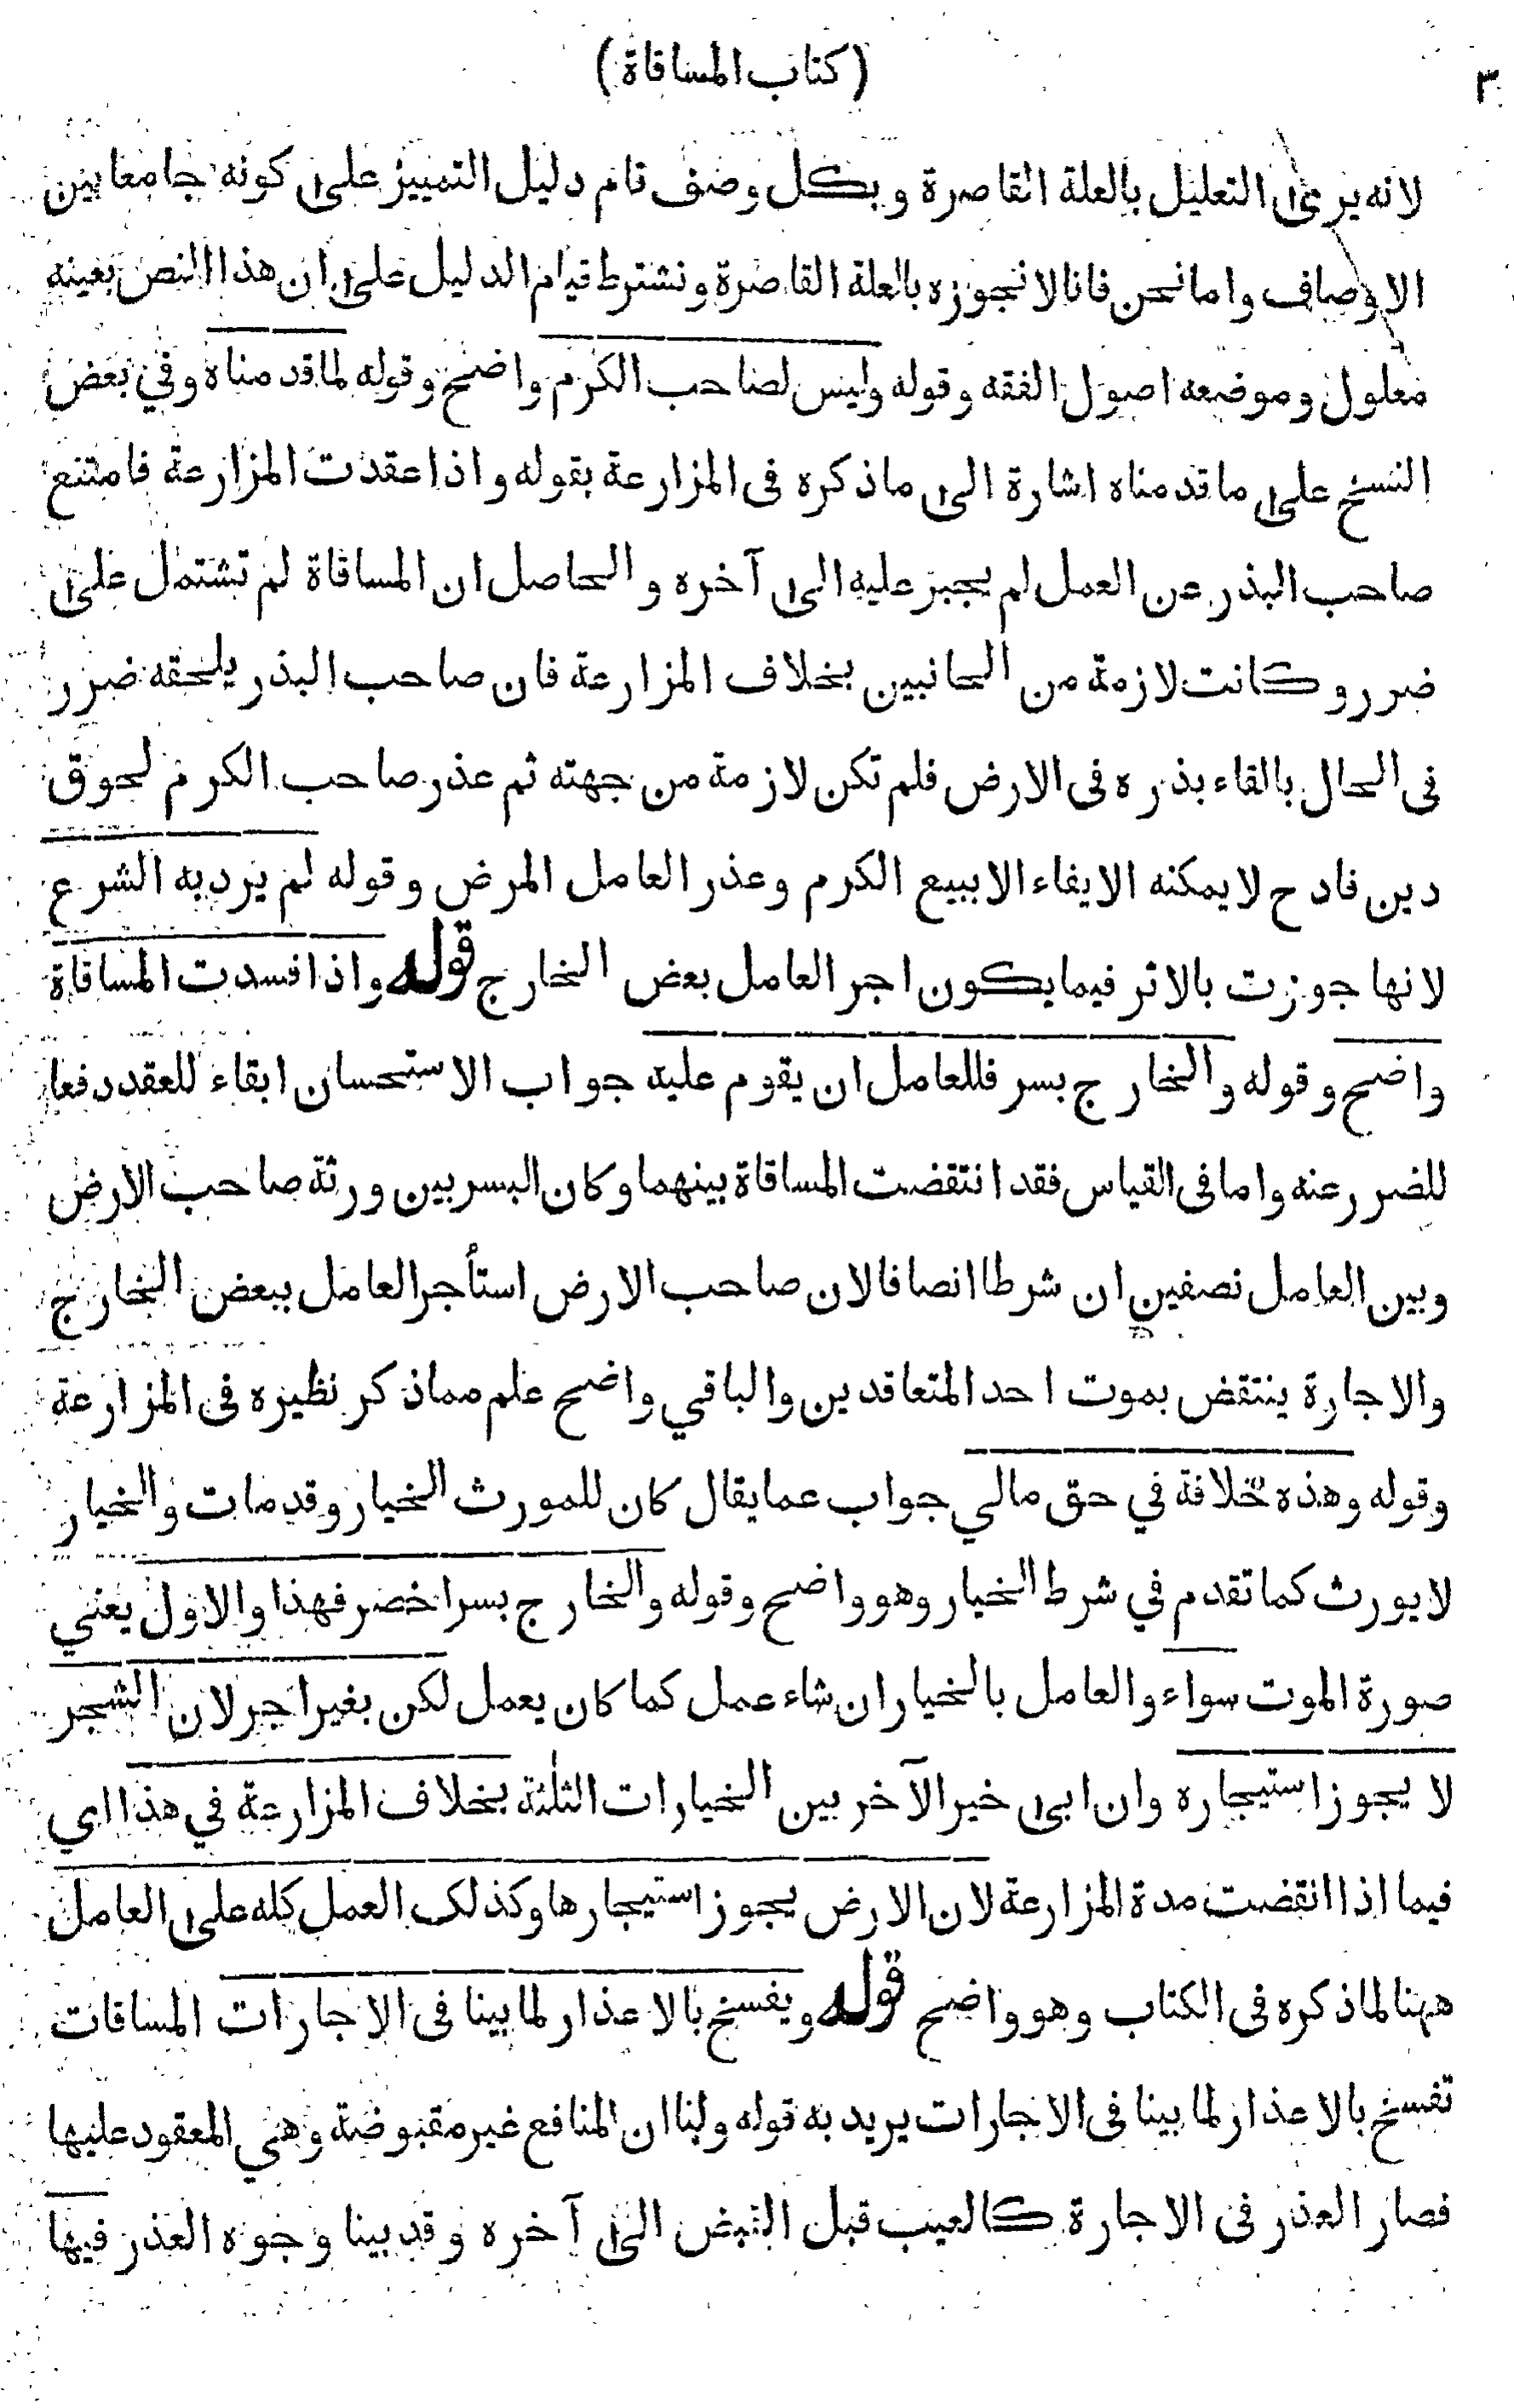 ٣
(كتاب المساقاة)
لانه يرى التعليل بالعلة القاصرة وبكل وصف قام دليل التمييز على كونه جامعا بين
الاوصاف واما نحن فانا لا نجوزه بالعلة القاصرة ونشترط قيام الدليل على ان هذا النص بعينه
معلول وموضعه اصول الفقه وقوله وليس لصاحب الكرم واضح وقوله لما قدمناه وفي بعض
النسخ على ما قدمناه اشارة الى ما ذكره فى المزارعة بقوله واذا عقدت المزارعة فامتنع
صاحب البذر عن العمل لم يجبر عليه الى آخره والحاصل ان المساقاة لم تشتمل على
ضرر وكانت لازمة من الجانبين بخلاف المزارعة فان صاحب البذر يلحقه ضرر
فى الحال بالقاء بذره فى الارض فلم تكن لازمة من جهته ثم عذر صاحب الكرم لحوق
دين فادح لا يمكنه الايفاء الا ببيع الكرم وعذر العامل المرض وقوله لم يرد به الشرع
لانها جوزت بالاثر فيما يكون اجر العامل بعض الخارج قوله واذا فسدت المساقاة
واضح وقوله والخارج بسر فللعامل ان يقوم عليه جواب الاستحسان ابقاء للعقد دفعا
للضرر عنه واما فى القياس فقد انتقضت المساقاة بينهما وكان البسر بين ورثة صاحب الارض
وبين العامل نصفين ان شرطا انصافا لان صاحب الارض استأجر العامل ببعض الخارج
والاجارة ينتقض بموت احد المتعاقدين والباقي واضح علم مما ذكر نظيره فى المزارعة
وقوله وهذه خلافة في حق مالي جواب عما يقال كان للمورث الخيار وقد مات والخيار
لا يورث كما تقدم في شرط الخيار وهو واضح وقوله والخارج بسر اخضر فهذا والاول يعني
صورة الموت سواء والعامل بالخيار ان شاء عمل كما كان يعمل لكن بغير اجر لان الشجر
لا يجوز استيجاره وان ابى خير الآخر بين الخيارات الثلثة بخلاف المزارعة في هذا اي
فيما اذا انقضت مدة المزارعة لان الارض يجوز استيجارها وكذلك العمل كله على العامل
ههنا لما ذكره فى الكتاب وهو واضح قوله ويفسخ بالاعذار لما بينا فى الاجارات المساقات
تفسخ بالاعذار لما بينا فى الاجارات يريد به قوله ولنا ان المنافع غير مقبوضة وهي المعقود عليها
فصار العذر فى الاجارة كالعيب قبل القبض الى آخره وقد بينا وجوه العذر فيها